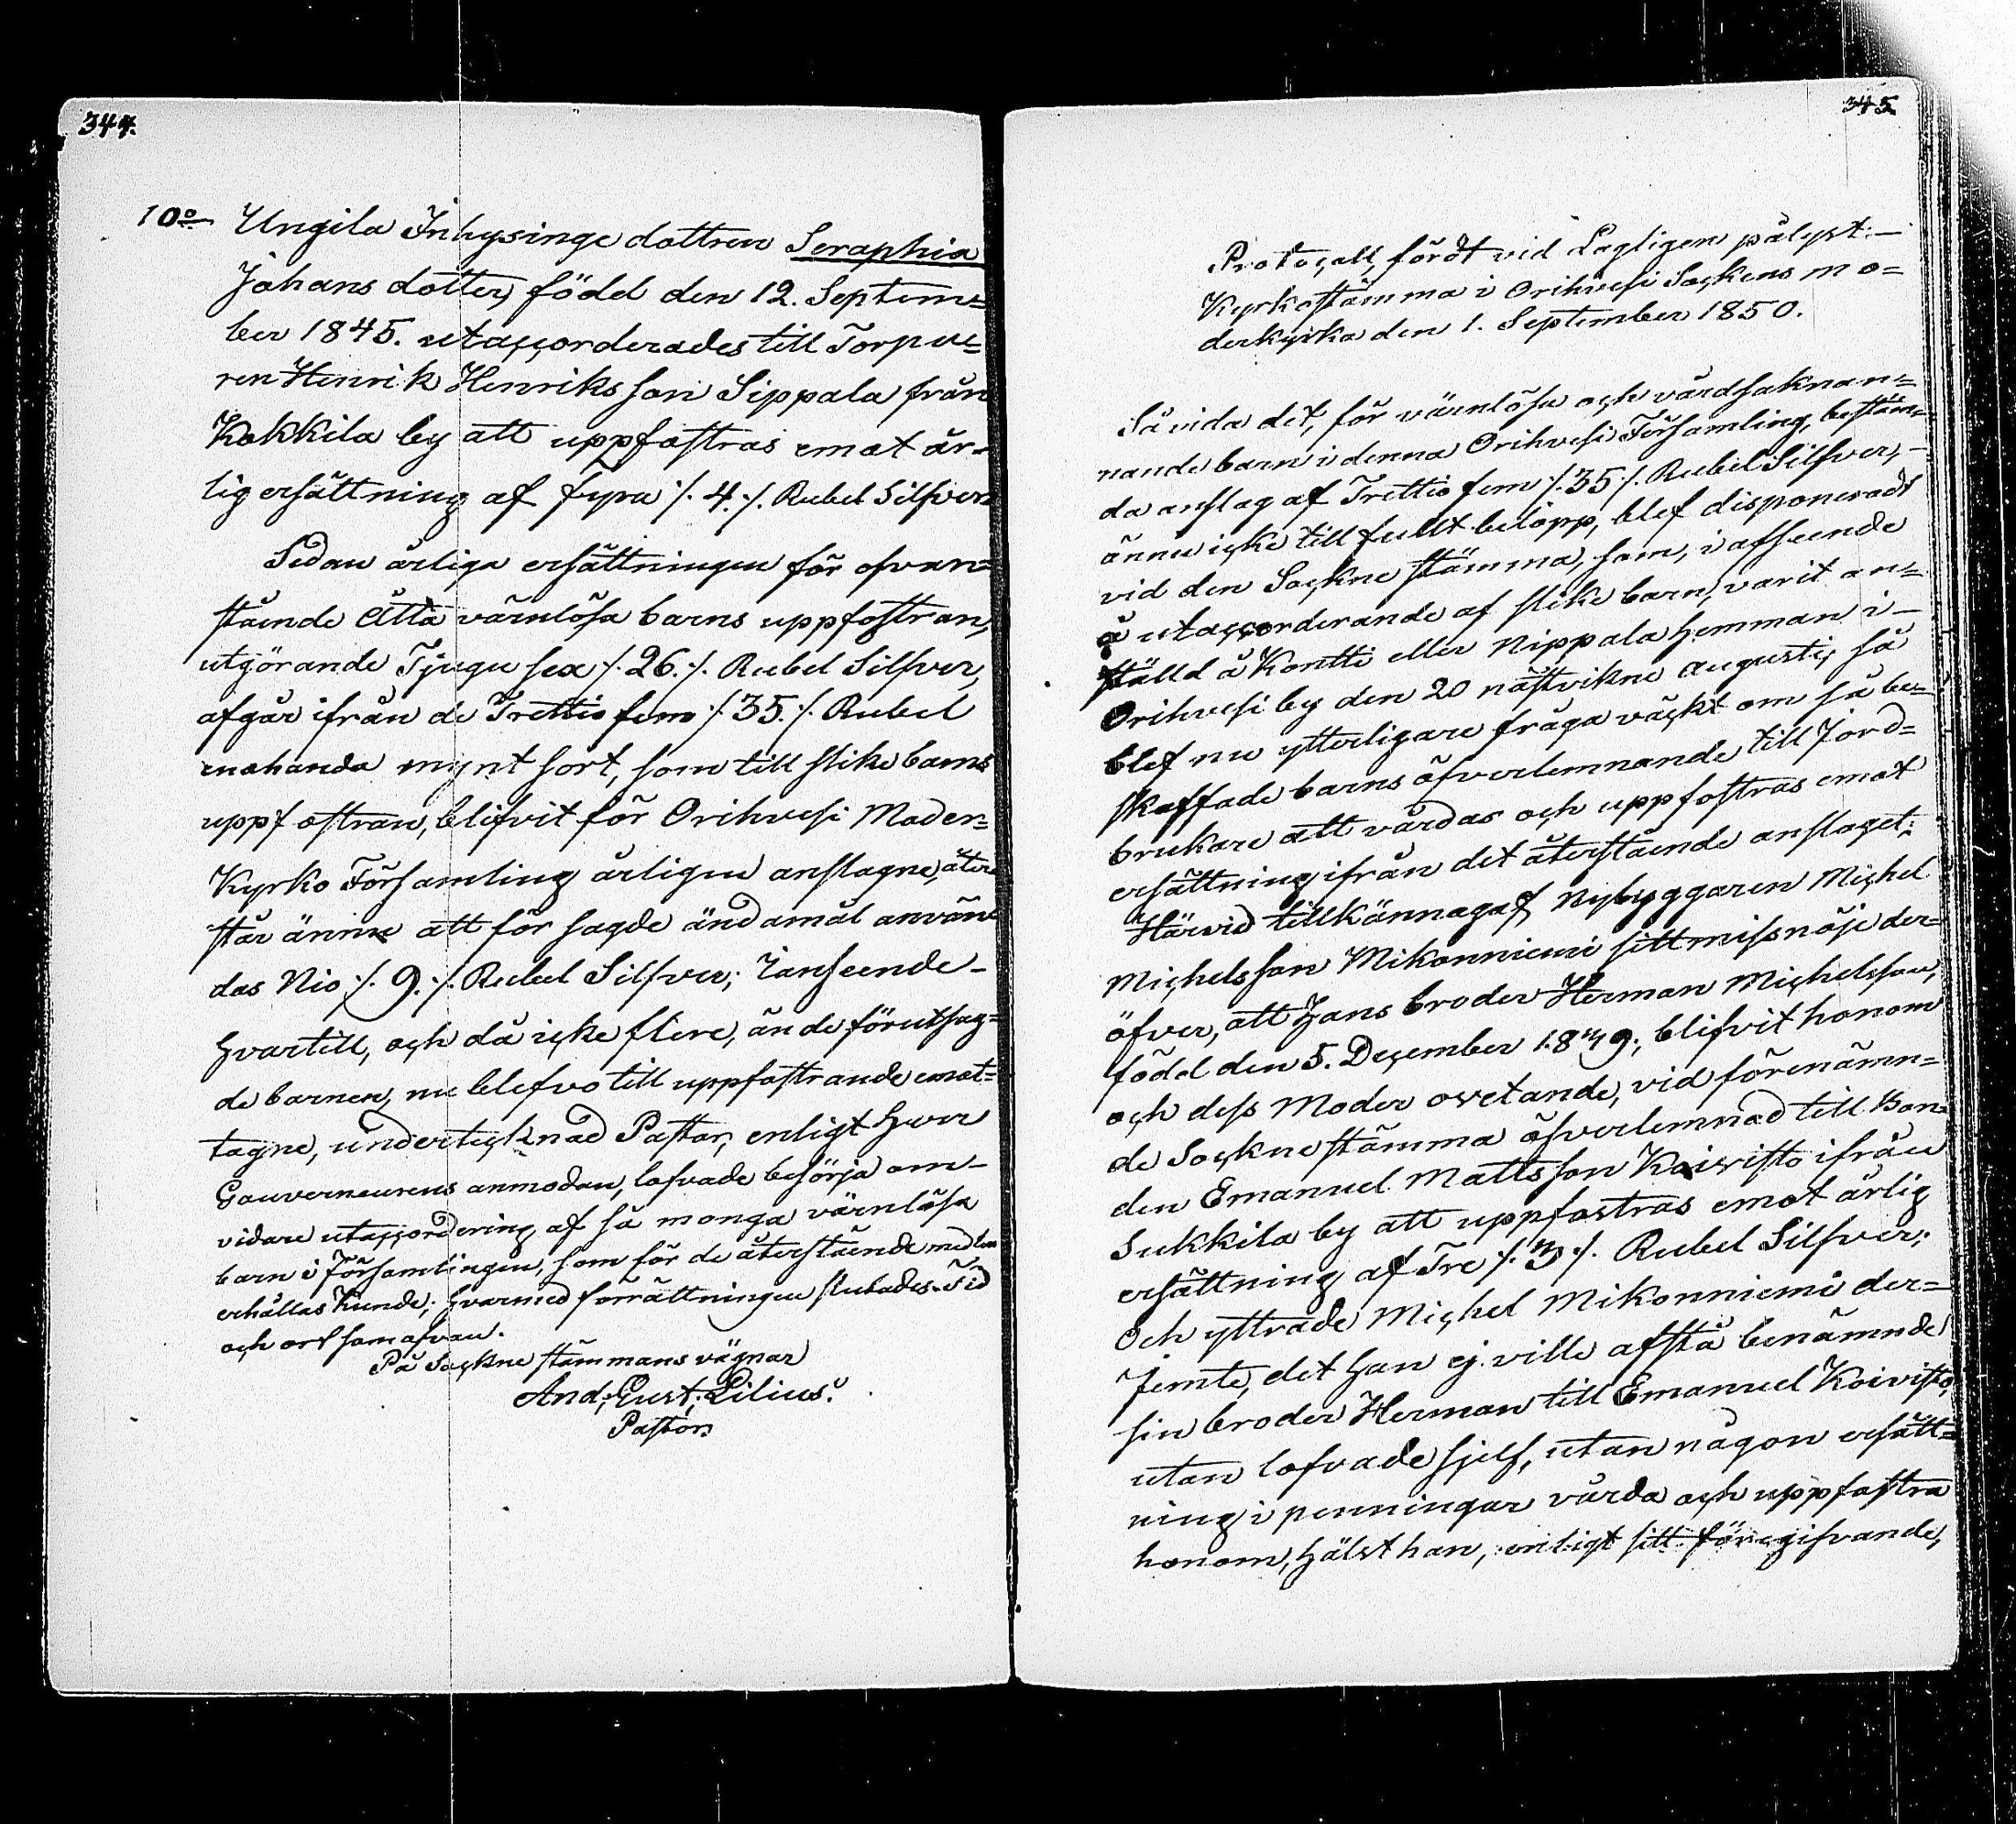 344.
10:o Ungila Inhysinge dottren Seraphia
Johans dotter, född den 12. Septem=
ber 1845. utaccorderades till Torpa=
ren Henrik Henriksson Sippala från
Kokkila by att uppfostras emot år=
lig ersättning af fyra /. 4. /. Rubel Silfver.
Sedan årliga ersättningen för ofvan=
stående Åtta värnlösa barns uppfostran,
utgörande Tjugu sex /. 26. /. Rubel Silfver,
afgår ifrån de Trettio fem /. 35. /. Rubel
enahanda mynt sort, som till slike barns
uppfostran, blifvit för Orihvesi Moder=
Kyrko Församling årligen anslagne, åter
står ännu att för sagde ändamål använ
das Nio /. 9. /. Rubel Silfver; i anseende
hvartill, och då icke flere, än de förutsag=
de barnen, nu blefvo till uppfostrande emot=
tagne, undertecknad Pastor, enligt Herr
Gouverneurens anmodan, lofvade besörja om
vidare utaccordering af så monga värnlösa
barn i Församlingen, som för de återstående medlen
erhållas kunde; hvarmed förrättningen slutades. Tid
och ort som ofvan.
På Sockne stämmans vägnar
And: Gust: Lilius.
Pastor.
345
Protocoll, fördt vid Lagligen pålyst
Kyrkostämma i Orihvesi Sockens mo=
derkyrka den 1. September 1850.
Såvida det, för värnlösa och vårdsaknan=
nande barn i denna Orihvesi Församling, bestäm=
da anslag af Trettio fem /. 35 /. Rubel Silfver,
ännu icke till fullt belopp, blef disponeradt
vid den Sockne stämma, som, i afseende
å utaccorderande af slike barn, varit an=
ställd å Kontti eller Nippala hemman i
Orihvesi by den 20 nästvikne Augusti, så
blef nu ytterligare fråga väckt om så be=
skaffade barns öfverlemnande till Jord=
brukare att vårdas och uppfostras emot
ersättning ifrån det återstående anslaget;
Härvid tillkännagaf Nybyggaren Michel
Michelsson Mikonniemi sitt missnöje der=
öfver, att Hans broder Herman Michelsson,
född den 5. December 1849, blifvit honom
och dess Moder ovetande, vid förenämn=
de Socknestämma öfverlemnad till Bon=
den Emanuel Mattsson Koivisto ifrån
Sukkila by att uppfostras emot årlig
ersättning af Tre /. 3 /. Rubel Silfver;
Och yttrade Michel Mikonniemi der=
jemte, det han ej ville afstå benämnde
sin broder Herman till Emanuel Koivisto,
utan lofvade sjelf, utan någon ersätt=
ning i penningar vårda och uppfostra
honom, hälst han, enligt sitt föregifvande,